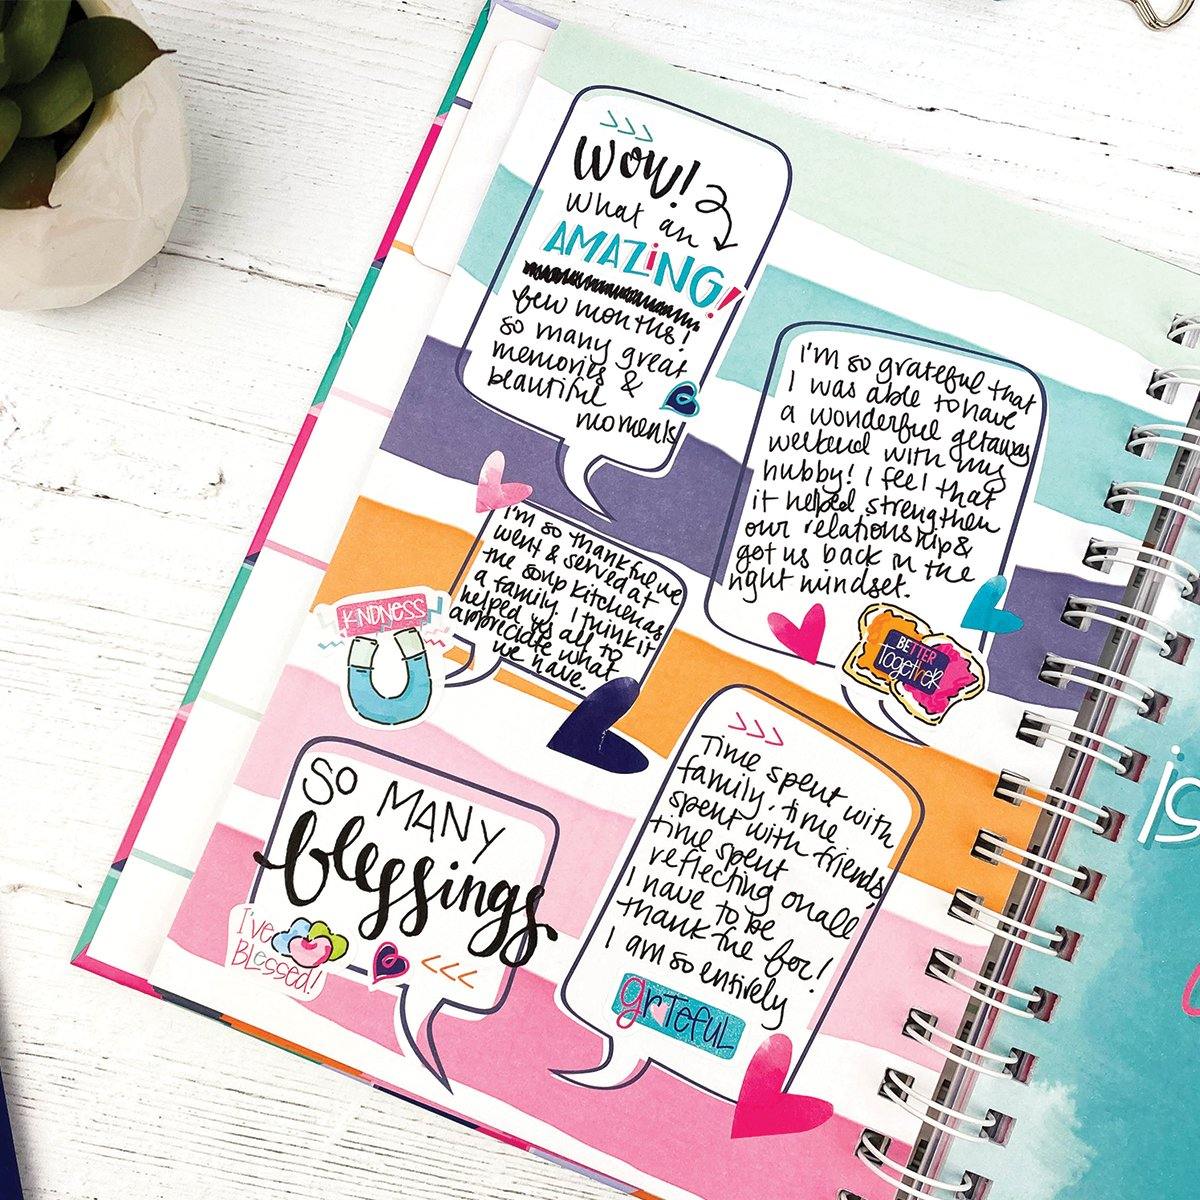 >>>
Wow!
What an
AMAZiNG!
few months!
so many great
memories &
beautiful
moments
I'm so grateful that
I was able to have
a wonderful getaway
weekend with my
hubby! I feel that
it helped strengthen
our relationship &
got us back in the
right mindset.
BETTER
TogetheR
I'm so thankful we
went & served at
the soup kitchen as
a family. I think it
helped us all to
appreciate what
we have.
KiNDNESS
SO MANY
blessings
I've
BLessed!
<<<
>>>
Time spent with
family, time
spent with friends,
time spent
reflecting on all
I have to be
thankful for!
I am so entirely
grateful
is